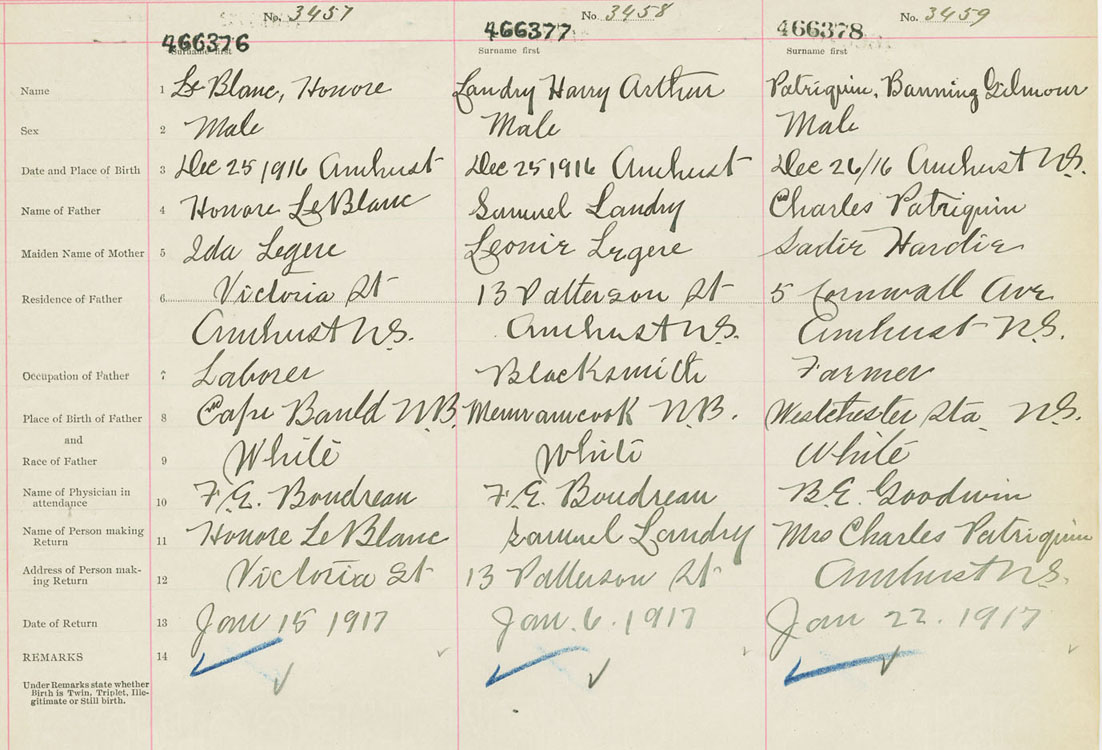 No. 3457 No. 3458 No. 3459
466376 466377 466378
Surname first Surname first Surname first
Name 1 Le Blanc, Honore Landry Harry Arthur Patriquin, Banning Gilmour
Sex 2 Male Male Male
Date and Place of Birth 3 Dec 25 1916 Amherst Dec 25 1916 Amherst Dec 26/16 Amherst N.S.
Name of Father 4 Honore LeBlanc Samuel Landry Charles Patriquin
Maiden Name of Mother 5 Ida Legere Leonie Legere Sadie Hardie
Residence of Father 6 Victoria St 13 Patterson St 5 Cornwall Ave
Amherst N.S. Amherst N.S. Amherst N.S.
Occupation of Father 7 Laborer Blacksmith Farmer
Place of Birth of Father 8 Cape Bauld N.B. Memramcook N.B. Westchester Sta N.S.
and
Race of Father 9 White White White
Name of Physician in attendance 10 F.E. Boudreau F.E. Boudreau B.E. Goodwin
Name of Person making Return 11 Honore LeBlanc Samuel Landry Mrs Charles Patriquin
Address of Person mak-ing Return 12 Victoria St 13 Patterson St Amherst N.S.
Date of Return 13 Jan 15 1917 Jan. 6. 1917 Jan 22. 1917
REMARKS 14
Under Remarks state whether
Birth is Twin, Triplet, Ille-
gitimate or Still birth.